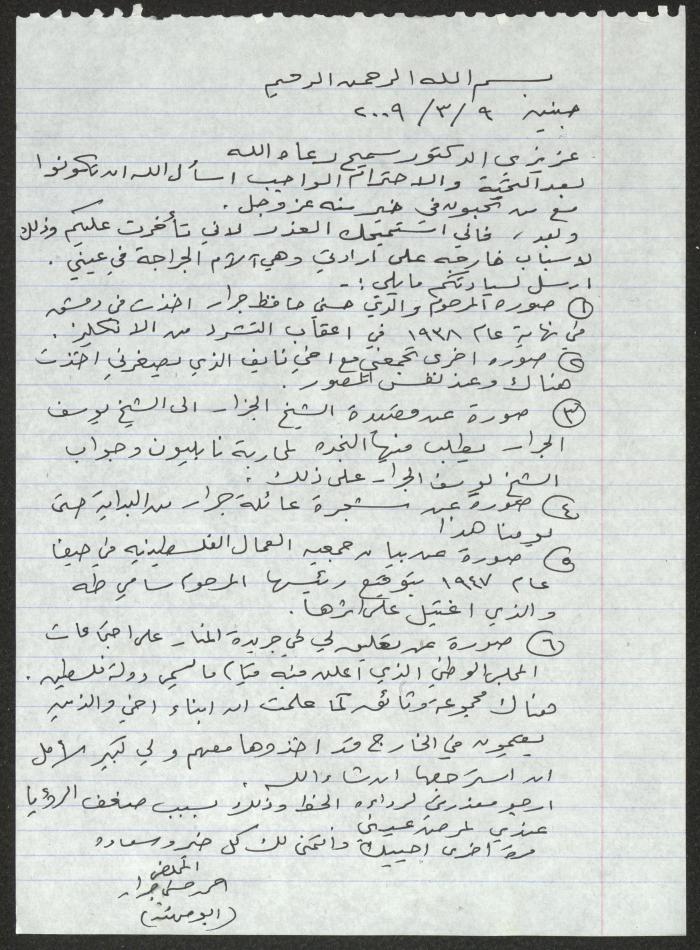 بسم الله الرحمن الرحيم
جنين ٩ /٣ /٢٠٠٩
عزيزي الدكتور سميح رعاه الله
بعد التحية والاحترام الواجب اسأل الله ان تكونوا
مع من تحبون في خير منه عز وجل .
وبعد ، فاني استميحك العذر لاني تأخرت عليكم وذلك
لاسباب خارجه على ارادتي وهي آلام الجراحة في عيني .
ارسل لسيادتكم ما يلي :-
١ صورة المرحوم والدي حسني حافظ جرار اخذت في دمشق
في نهاية عام ١٩٣٨ في اعقاب التشرد من الانكليز .
٢ صوره اخرى تجمعني مع اخي نايف الذي يصغرني اخذت
هناك وعند نفس المصور .
٣ صورة عن قصيدة الشيخ الجزار الى الشيخ يوسف
الجرار يطلب منها النجده لمحاربة نابليون وجواب
الشيخ يوسف الجرار على ذلك .
٤ صورة عن شجرة عائلة جرار من البداية حتى
يومنا هذا
٥ صورة عن بيان جمعية العمال الفلسطينيه في حيفا
عام ١٩٤٧ بتوقيع رئيسها المرحوم سامي طه
والذي اغتيل على اثرها .
٦ صورة عن تعليق لي في جريدة المنار على اجتماعات
المجلس الوطني الذي اعلن فيه قيام ما سمي دولة فلسطين .
هناك مجموعة وثائق كما علمت ان ابناء اخي والذين
يقيمون في الخارج قد اخذوها معهم ولي كبير الأمل
ان استرجعها ان شاء الله .
ارجو معذرتي لرداءه الخط وذلك بسبب ضعف الرؤيا
عندي لمرض عيني
مرة اخرى احييك واتمنى لك كل خير وسعاده
المخلص
احمد حسني جرار
(ابو )